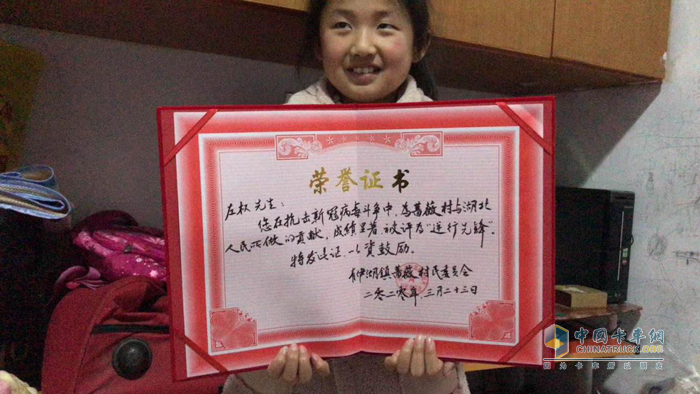 荣誉证书
左权先生：
您在抗击新冠病毒斗争中，为蔷薇村与湖北
人民所做的贡献，成绩显著，被评为“逆行先锋”。
特发此证，以资鼓励。
钟湖镇蔷薇村民委员会
二零二零年，三月二十三日
中国卡车网
CHINATRUCK.ORG
因为卡车所以朋友